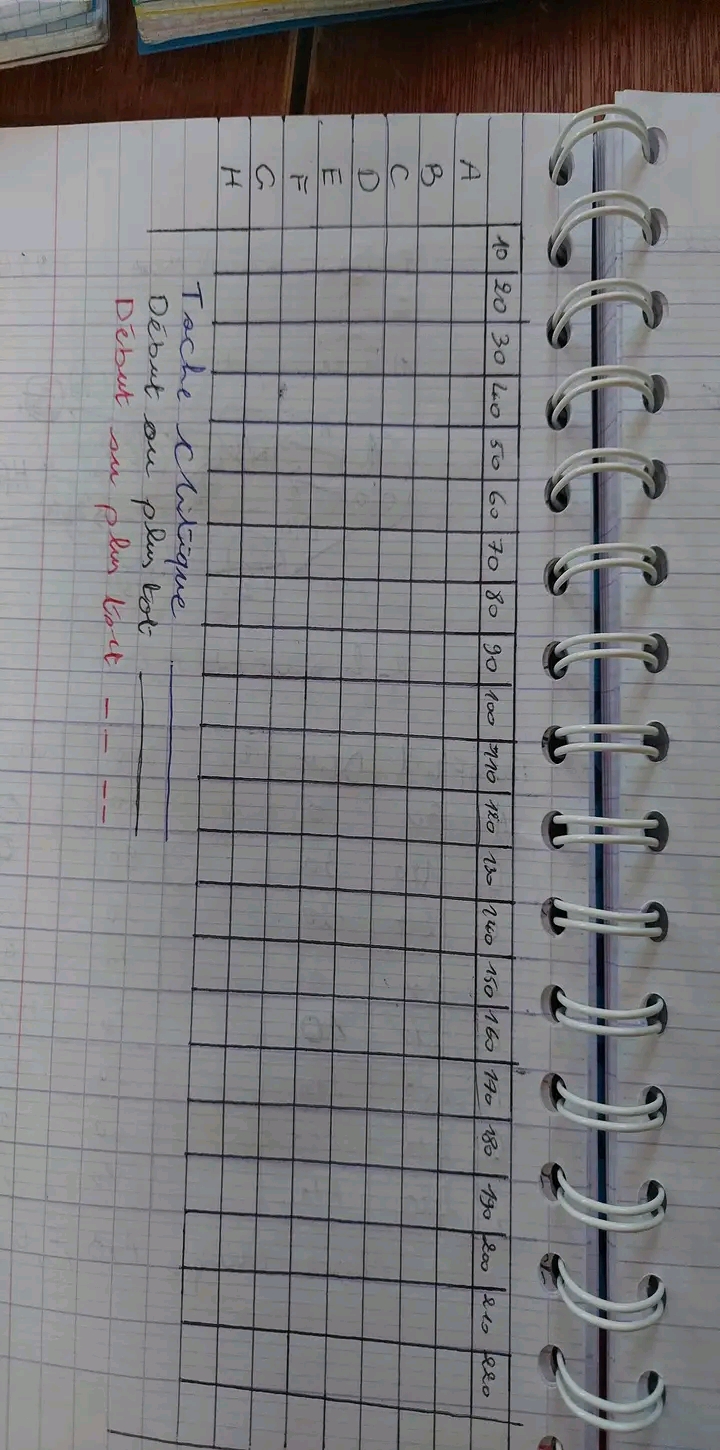 10 20 30 40 50 60 70 80 90 100 110 120 130 140 150 160 170 180 190 200 210 220
A
B
C
D
E
F
G
H
Tache clitique
Début au plus tot
Début au plus tart